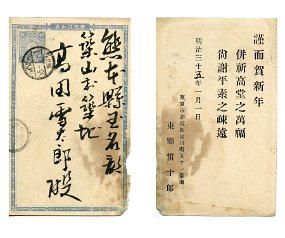 熊本縣玉名郡
築山村築地
高田雪太郎殿
謹而賀新年
併祈高堂之萬福
尚謝平素之疎遠
明治三十五年一月一日
東郷慎十郎